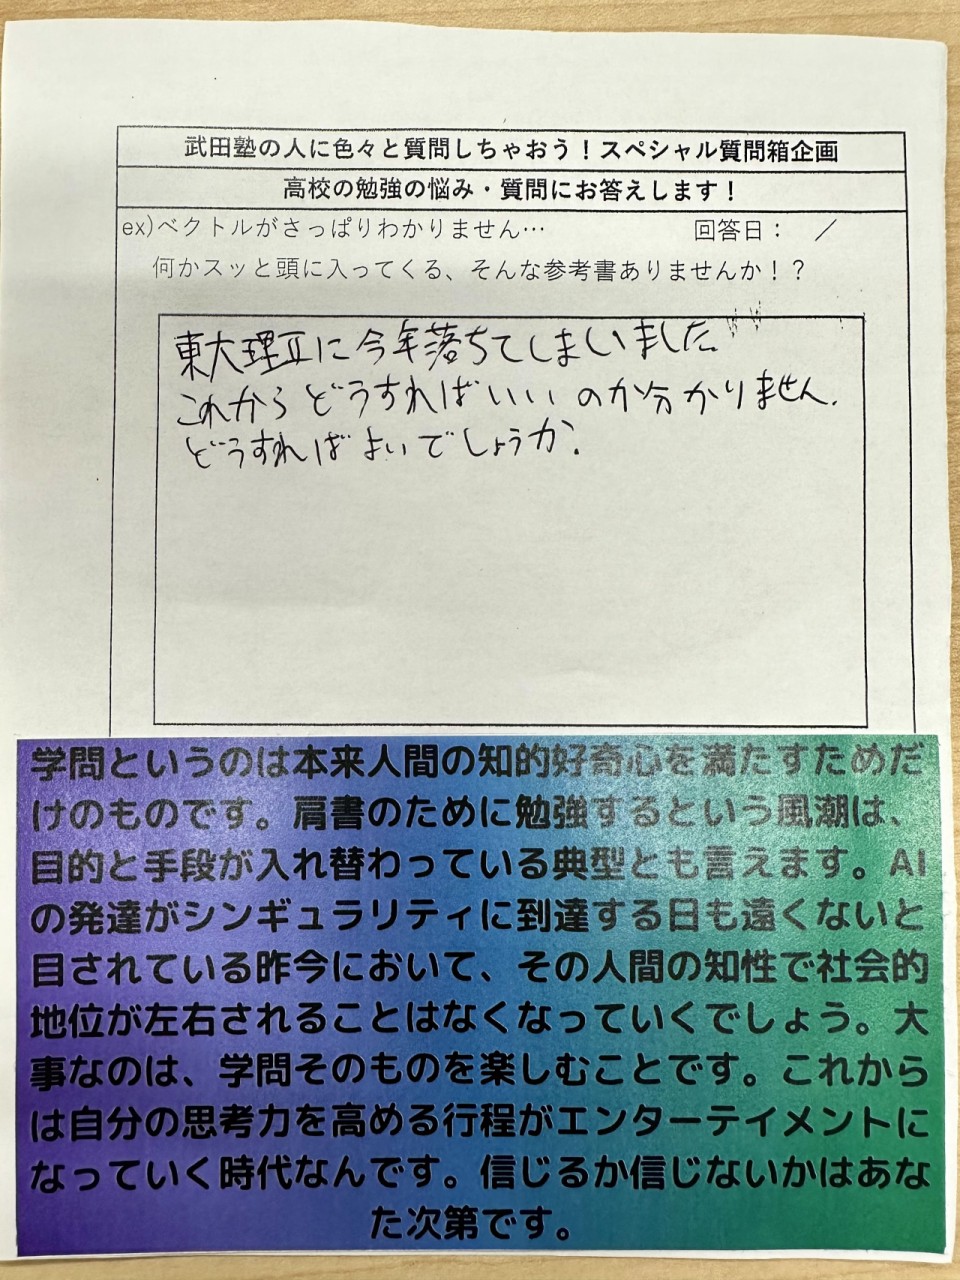 武田塾の人に色々と質問しちゃおう！スペシャル質問箱企画
高校の勉強の悩み・質問にお答えします！
ex)ベクトルがさっぱりわかりません…　回答日：　／
何かスッと頭に入ってくる、そんな参考書ありませんか！？
東大理Ⅲに今年落ちてしまいました
これからどうすればいいのか分かりません.
どうすればよいでしょうか.
学問というのは本来人間の知的好奇心を満たすためだ
けのものです。肩書のために勉強するという風潮は、
目的と手段が入れ替わっている典型とも言えます。AI
の発達がシンギュラリティに到達する日も遠くないと
目されている昨今において、その人間の知性で社会的
地位が左右されることはなくなっていくでしょう。大
事なのは、学問そのものを楽しむことです。これから
は自分の思考力を高める行程がエンターテイメントに
なっていく時代なんです。信じるか信じないかはあな
た次第です。